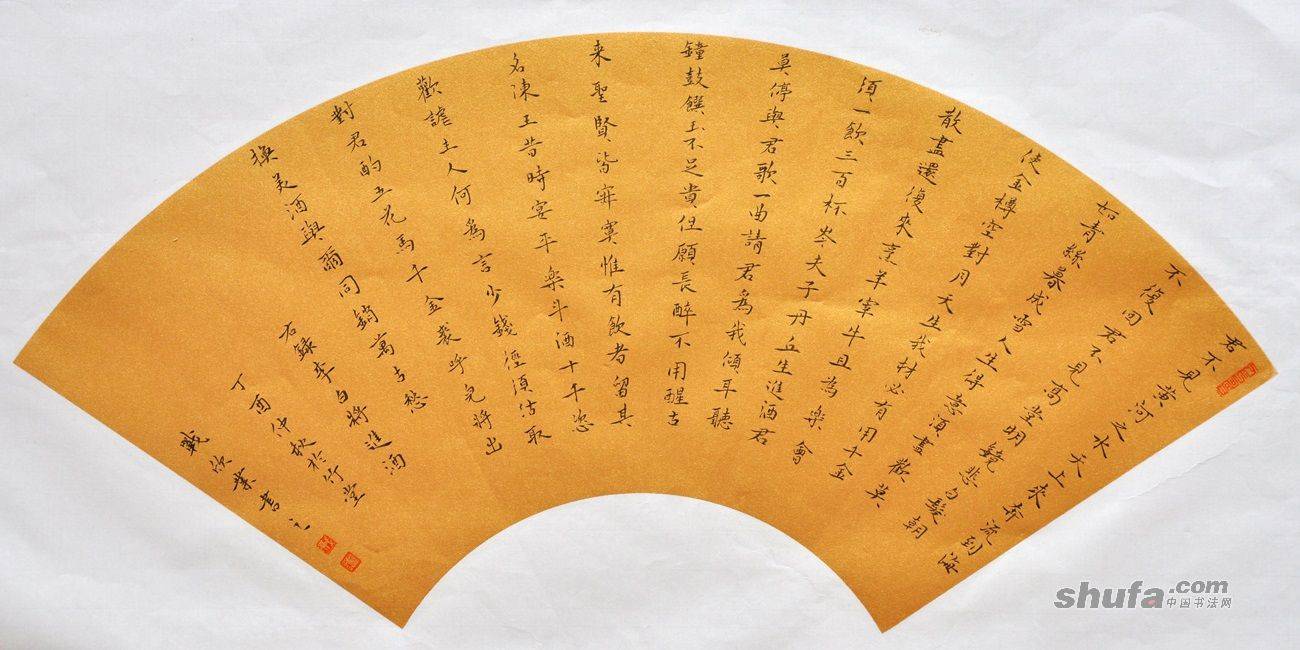 君不見黃河之水天上來奔流到海
不復回君不見高堂明鏡悲白髮朝
如青絲暮成雪人生得意須盡歡莫
使金樽空對月天生我材必有用千金
散盡還復來烹羊宰牛且為樂會
須一飲三百杯岑夫子丹丘生進酒君
莫停與君歌一曲請君為我傾耳聽
鐘鼓饌玉不足貴但願長醉不用醒古
来聖賢皆寂寞惟有飲者留其
名陳王昔時宴平樂斗酒十千恣
歡謔主人何為言少錢徑須沽取
對君酌五花馬千金裘呼兒將出
換美酒與爾同銷萬古愁
右録李白將進酒
丁酉仲秋於竹堂
戴欣業書之
shufa.com
中国书法网